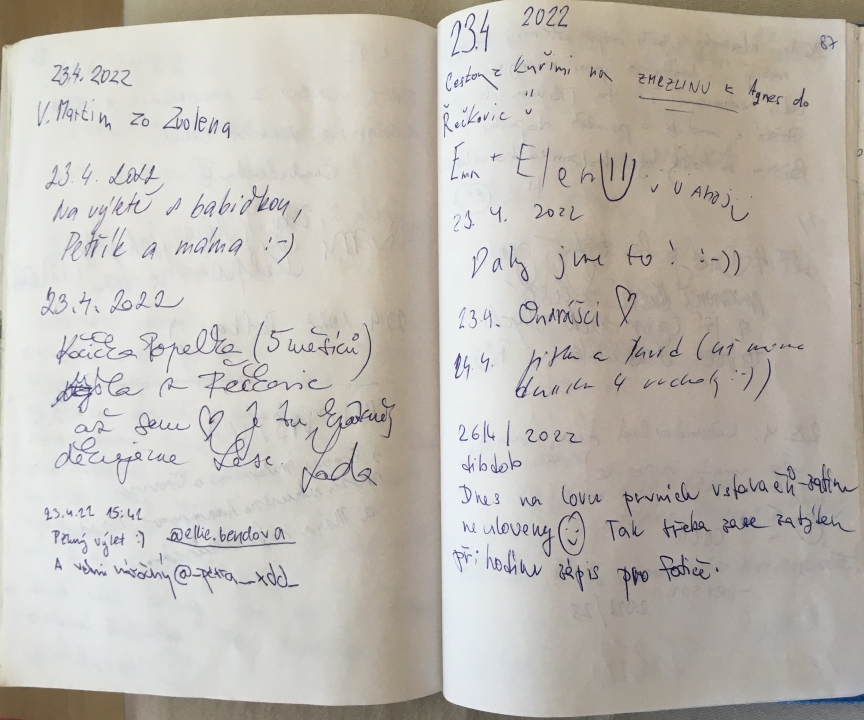 23.4.2022
V. Martin zo Zvolena
23.4.2022
Na výletě s babičkou,
Petřík a máma :-)
23.4.2022
Kočička Popelka (5 měsíců)
šla z Řečkovic
až sem ♡ Je tu krásně
děkujeme Lese. Lada
23.4.22 15:41
Pěkný výlet :) @ellie.bendova
A velmi náročný @_petra__xdd_
87
23.4 2022
Cestou z Kuřimi na ZMRZLINU k Agnes do
Řečkovic
Ema + Elen U Ahoj
23.4. 2022
Daly jsme to! :-))
23.4. Ondrášci ♡
24.4. a David (už máme
4 vrcholy :-))
26/4/2022
dibdob
Dnes na lovu prvních vstavačů - zatím
neuloveny ☺ Tak třeba zase za týden
při hodině zápis pro fotiče.